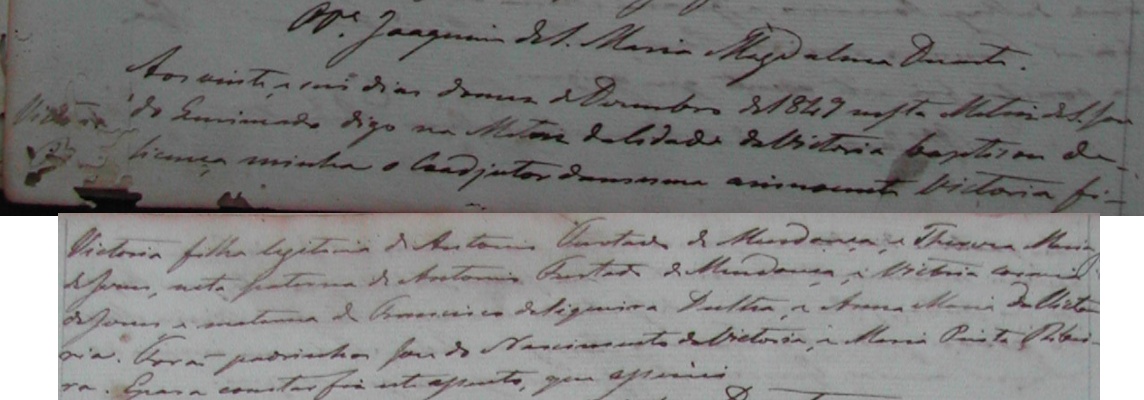 Pe. Joaquim de S. Maria Magdalena Duarte.
Victoria
Aos vinte, e seis dias do mez de Dezembro de 1849 nesta Matriz de S. José
do Queimado digo na Matriz da Cidade da Victoria baptisou de
licença minha o Coadjutor da mesma a innocente Victoria fi-
Victoria filha legitima de Antonio Furtado de Mendonça, e Thereza Maria
de Jesus, neta paterna de Antonio Furtado de Mendonça, e Victoria
de Jesus e materna de Francisco de Siqueira Dultra, e Anna Maria da Victo
ria. Forão padrinhos José do Nascimento da Victoria, e Maria Pinta Ribei-
ra. E para constar fiz este assento, que assinei